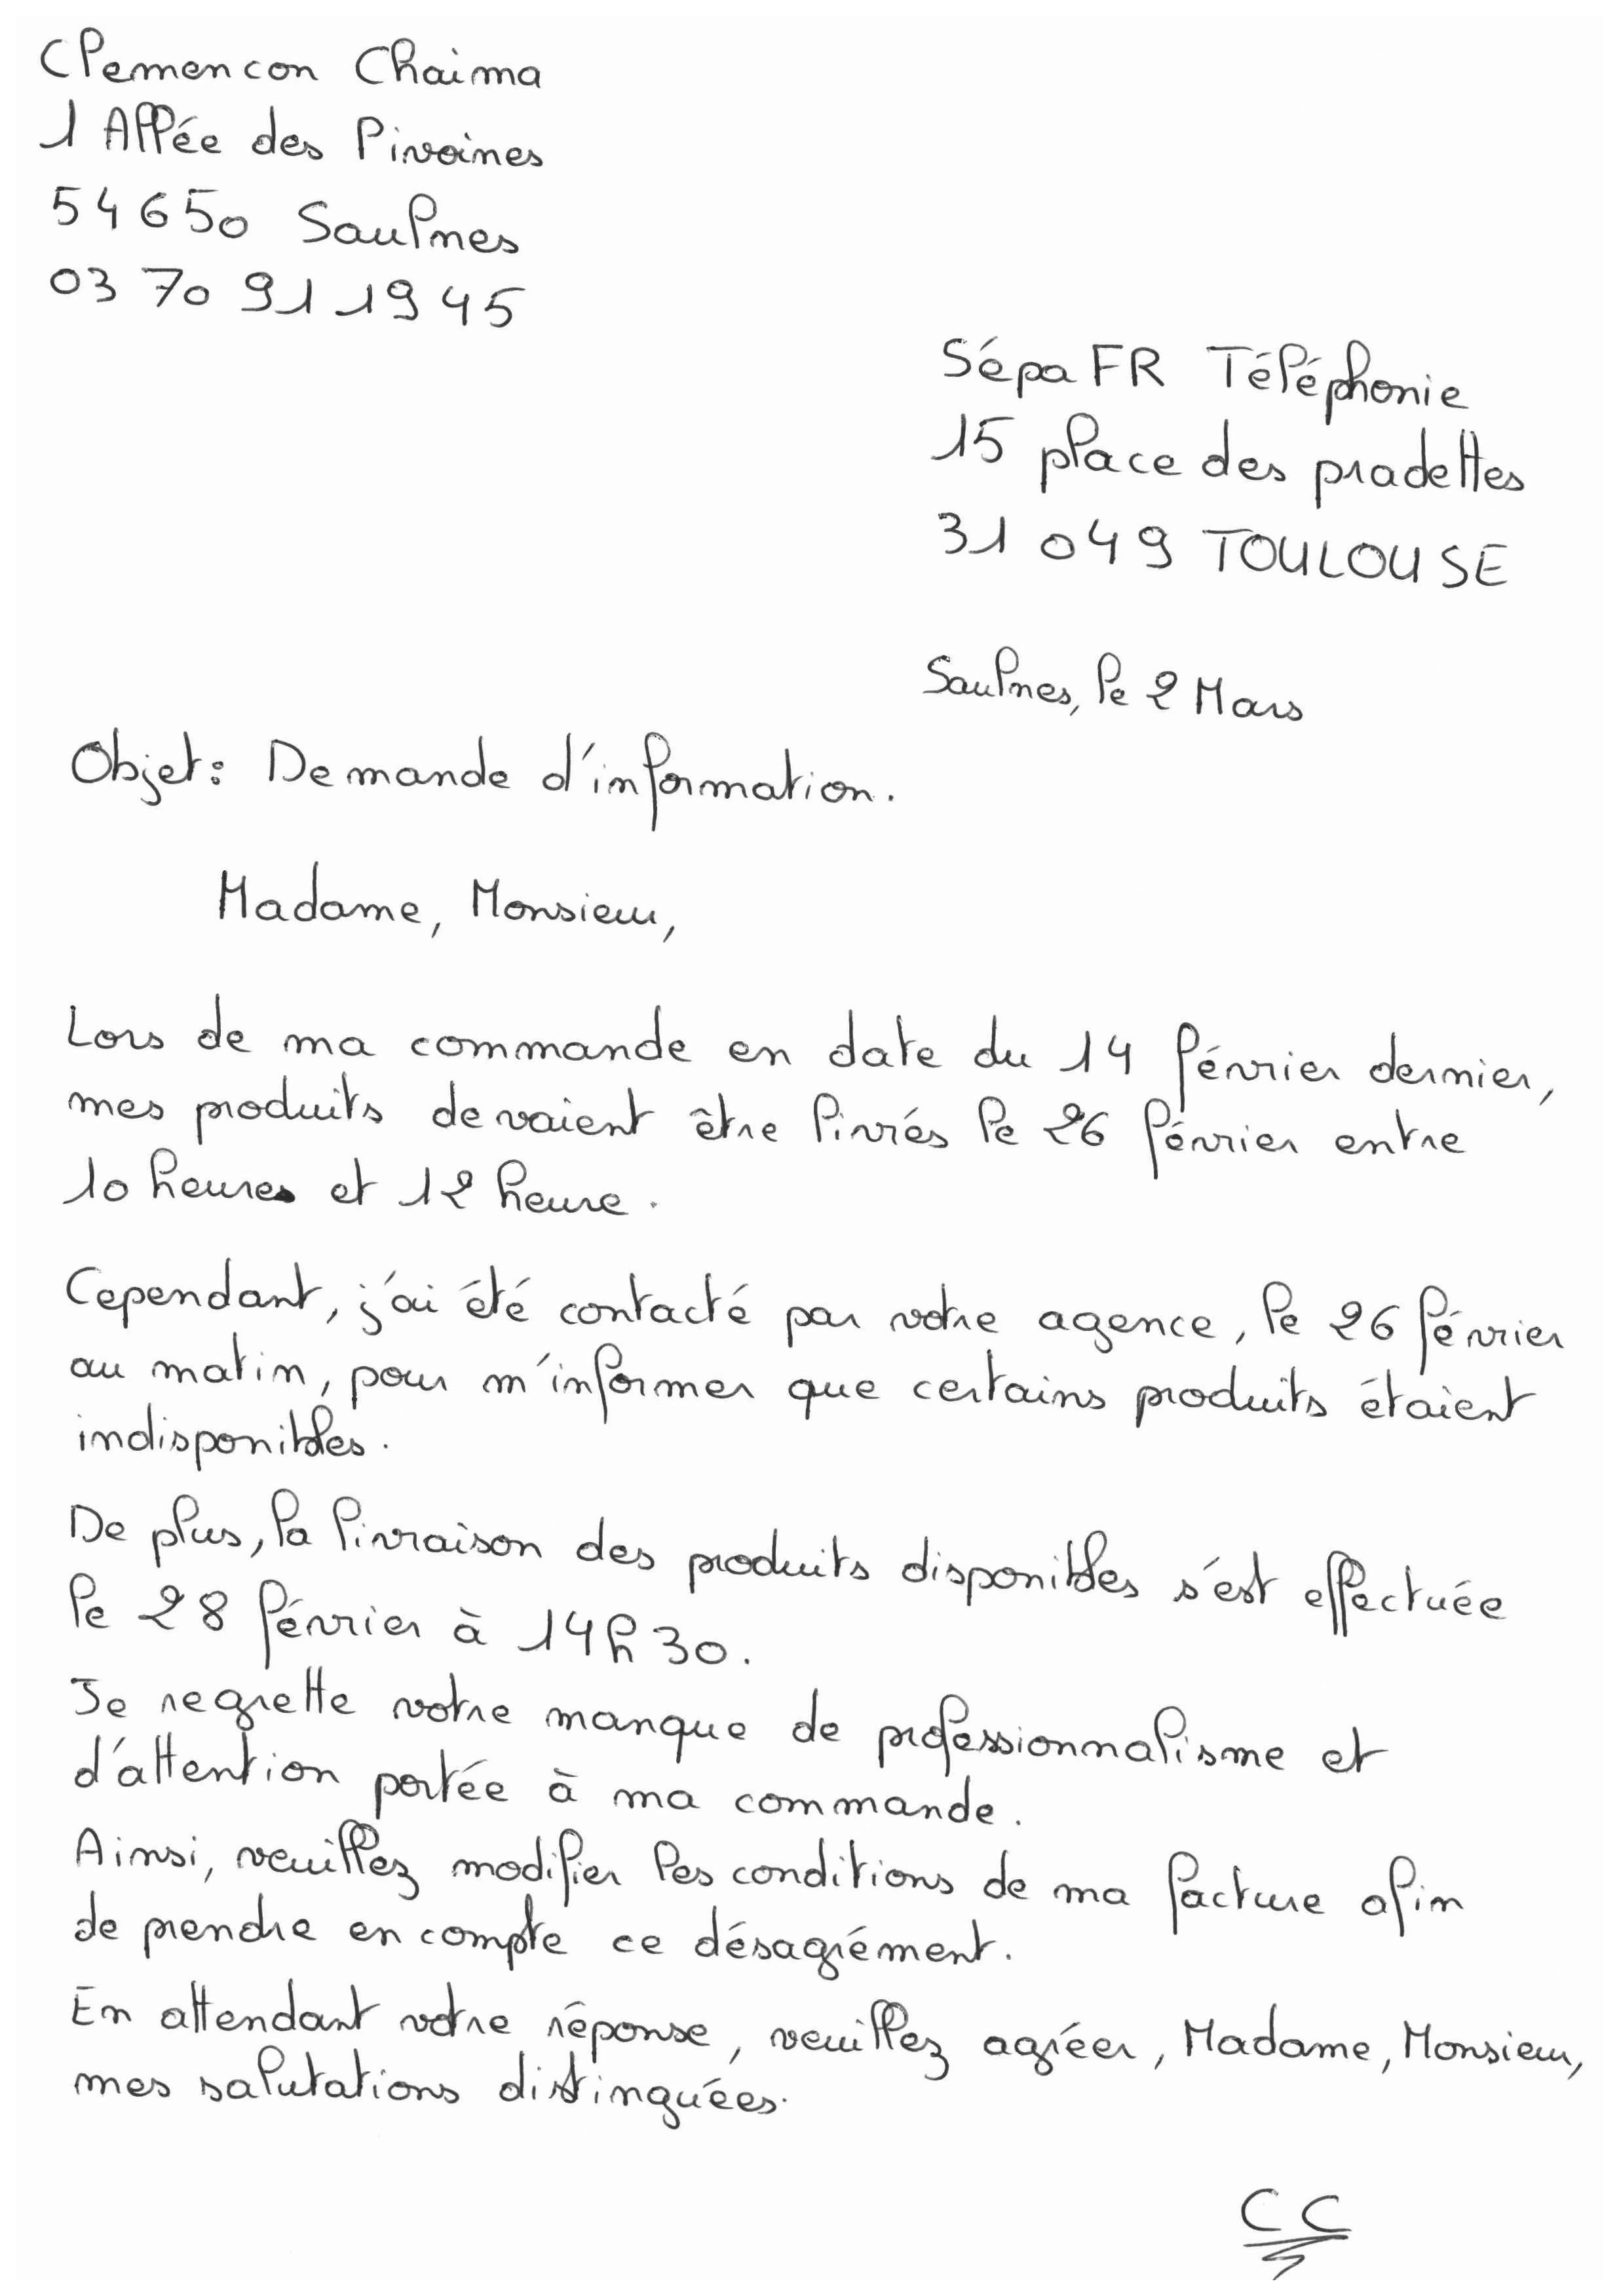 Clemencon Chaima
1 Allée des Pivoines
54650 Saulnes
03 70 91 19 45
Sépa FR Téléphonie
15 place des pradettes
31 049 TOULOUSE
Saulnes, le 2 Mars
Objet: Demande d'information.
Madame, Monsieur,
Lors de ma commande en date du 14 février dernier,
mes produits devaient être livrés le 26 février entre
10 heures et 12 heure.
Cependant, j'ai été contacté par votre agence, le 26 février
au matin, pour m'informer que certains produits étaient
indisponibles.
De plus, la livraison des produits disponibles s'est effectuée
le 28 février à 14h30.
Je regrette votre manque de professionnalisme et
d'attention portée à ma commande.
Ainsi, veuillez modifier les conditions de ma facture afin
de prendre en compte ce désagrément.
En attendant votre réponse, veuillez agréer, Madame, Monsieur,
mes salutations distinguées.
CC